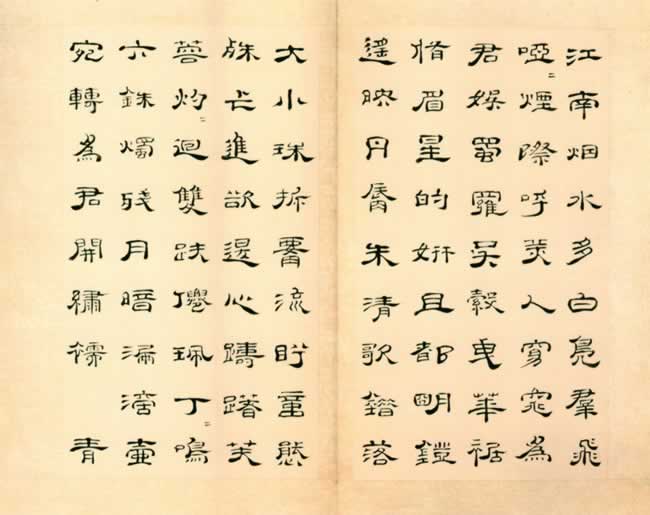 江南烟水多白鳧羣飛
啞〻煙際呼美人窈窕為
君娛蜀羅吳縠曳華裾
脩眉星的妍且都明鐙
遙映丹脣朱清歌錯落
大小珠流
殊進欲心躊躇芙
蓉灼〻迴雙趺僊珮丁〻鳴
六銖燭殘月暗漏滴壺
宛轉為君開繡襦 青